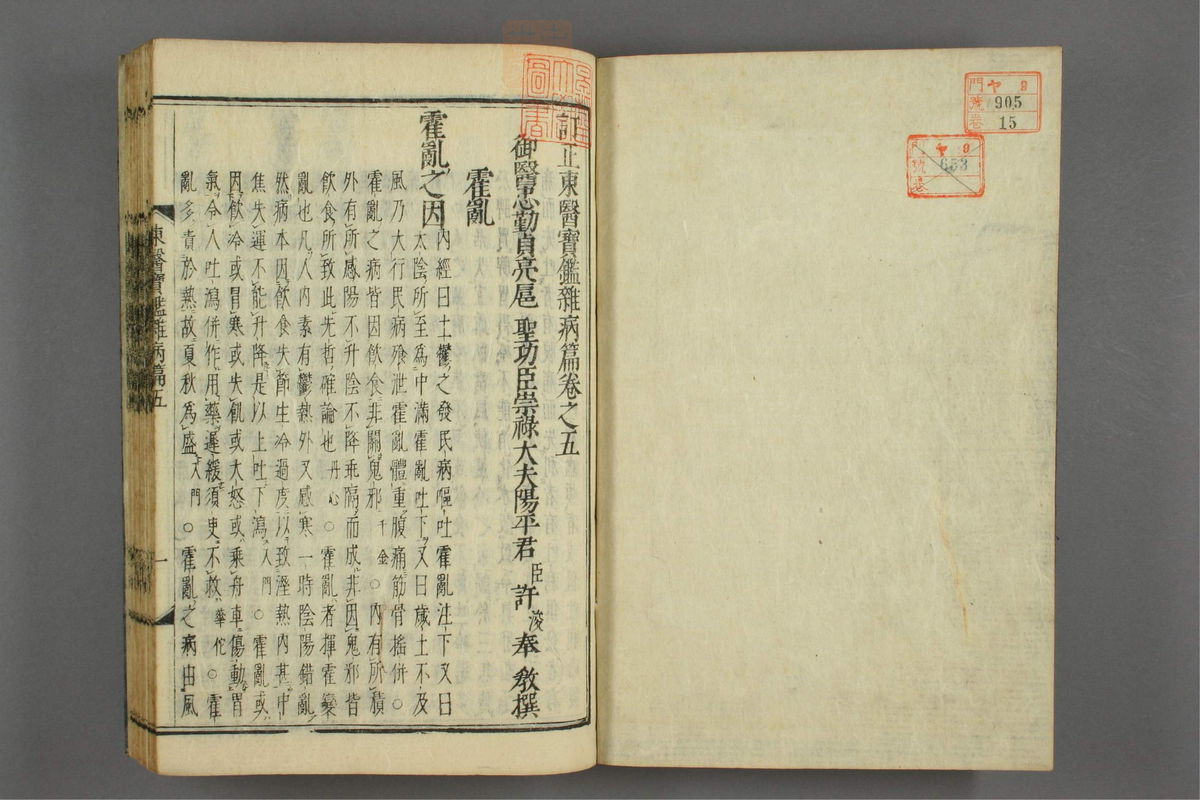 門 ヤ 9
號 905
卷 15
門 ヤ 9
號 653
卷
圖書
訂正東醫寶鑑雜病篇卷之五
御醫忠勤貞亮扈聖功臣崇祿大夫陽平君臣許浚奉教撰
霍亂
霍亂之因 內經曰土鬱之發民病嘔吐霍亂注下又曰
太陰所至為中滿霍亂吐下又曰歲土不及
風乃大行民病飱泄霍亂體重腹痛筋骨搖併○
霍亂之病皆因飮食非關鬼邪千金○內有所積
外有所感陽不升陰不降乖隔而成非因鬼邪皆
飮食所致此先哲確論也丹心○霍亂者揮霍變
亂也凡人內素有鬱熱外又感寒一時陰陽錯亂
然病本因飮食失節生冷過度以致溼熱內甚中
焦失運不能升降是以上吐下瀉入門○霍亂或
因飮冷或冒寒或失飢或大怒或乘舟車傷動胃
氣令人吐瀉併作用藥遲緩須臾不救華佗○霍
亂多責於熱故夏秋為盛入門○霍亂之病由風
東醫寶鑑雜病篇五
一